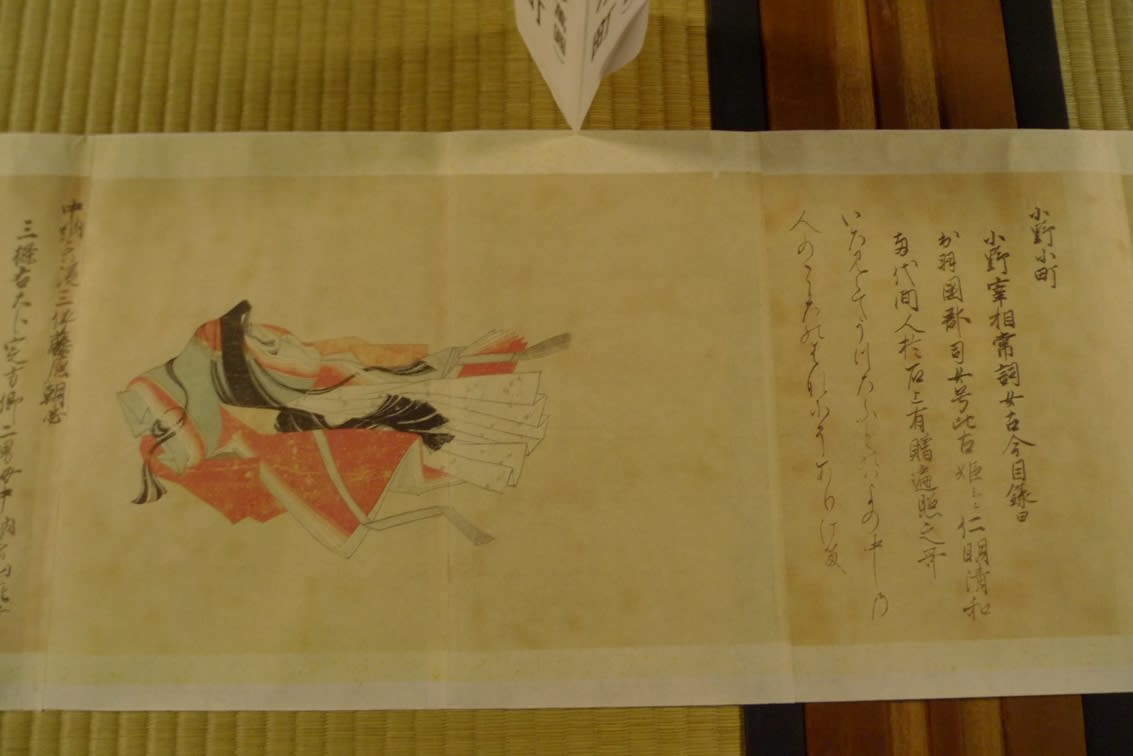 小野小町
小野宰相常詞女古今目録曰
出羽国郡司女号比古姫云々仁明清和
両代間人於石上有贈遍照之哥
いろみえてうつろふものはよの中の
人のこころのはなにそありける
中納言従三位藤原朝忠
三條右大臣定方卿二男母中納言山蔭女